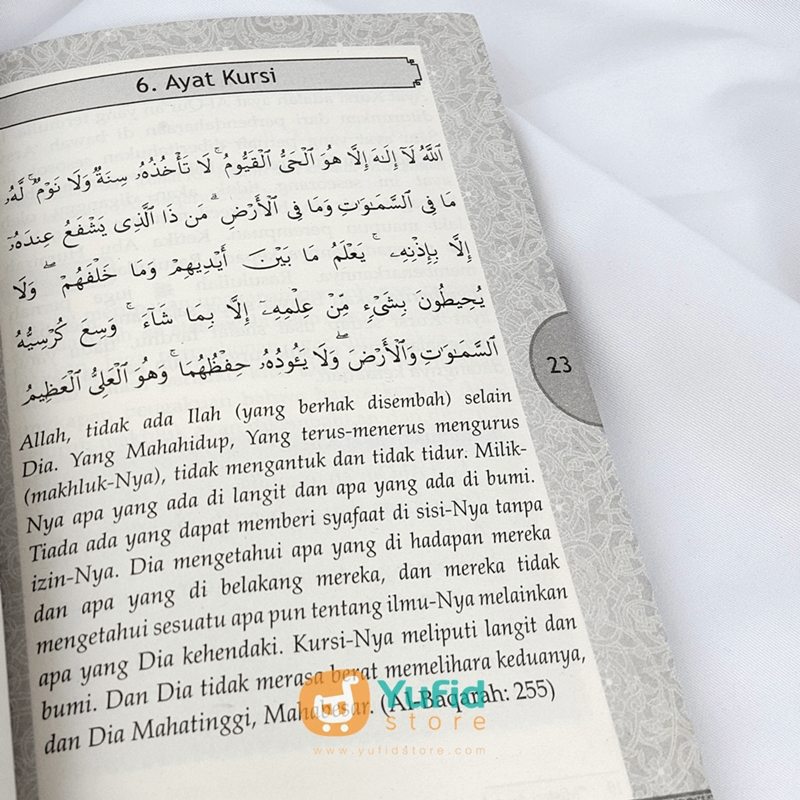 6. Ayat Kursi
اللَّهُ لَآ إِلَٰهَ إِلَّا هُوَ الْحَيُّ الْقَيُّومُ ۚ لَا تَأْخُذُهُۥ سِنَةٌ وَلَا نَوْمٌ ۚ لَّهُۥ
مَا فِي السَّمَٰوَٰتِ وَمَا فِي الْأَرْضِ ۗ مَن ذَا الَّذِي يَشْفَعُ عِندَهُۥٓ
إِلَّا بِإِذْنِهِۦ ۚ يَعْلَمُ مَا بَيْنَ أَيْدِيهِمْ وَمَا خَلْفَهُمْ ۖ وَلَا
يُحِيطُونَ بِشَيْءٍ مِّنْ عِلْمِهِۦٓ إِلَّا بِمَا شَآءَ ۚ وَسِعَ كُرْسِيُّهُ
السَّمَٰوَٰتِ وَالْأَرْضَ ۖ وَلَا يَـُٔودُهُۥ حِفْظُهُمَا ۚ وَهُوَ الْعَلِيُّ الْعَظِيمُ
23
Allah, tidak ada Ilah (yang berhak disembah) selain
Dia. Yang Mahahidup, Yang terus-menerus mengurus
(makhluk-Nya), tidak mengantuk dan tidak tidur. Milik-
Nya apa yang ada di langit dan apa yang ada di bumi.
Tiada ada yang dapat memberi syafaat di sisi-Nya tanpa
izin-Nya. Dia mengetahui apa yang di hadapan mereka
dan apa yang di belakang mereka, dan mereka tidak
mengetahui sesuatu apa pun tentang ilmu-Nya melainkan
apa yang Dia kehendaki. Kursi-Nya meliputi langit dan
bumi. Dan Dia tidak merasa berat memelihara keduanya,
dan Dia Mahatinggi, Mahabesar. (Al-Baqarah: 255)
Yufid
store
www.yufidstore.com